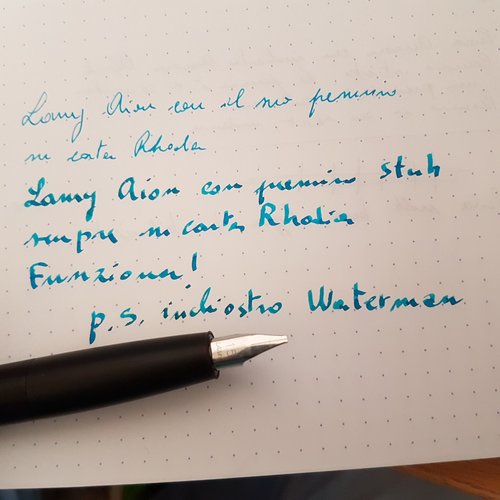 Lamy Aion con il suo pennino
su carta Rhodia
Lamy Aion con pennino stub
sempre su carta Rhodia
Funziona!
p.s. inchiostro Waterman